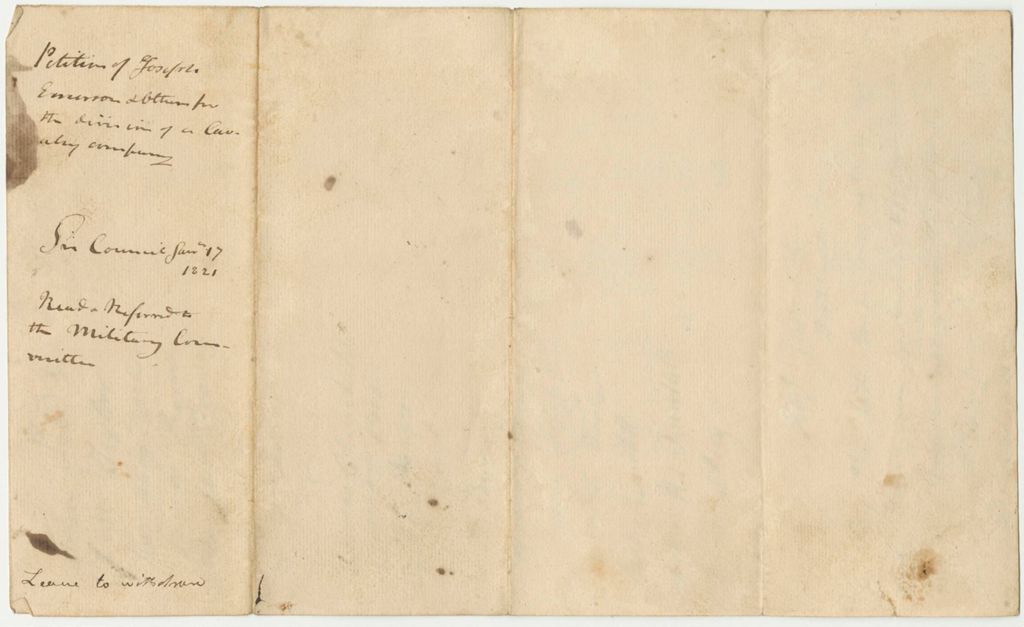 Petition of Joseph
Emerson & others for
the division of a Cav-
alry company
In Council Jany 17
1821
Read & Referred to
the Military Com-
mittee
Leave to withdraw